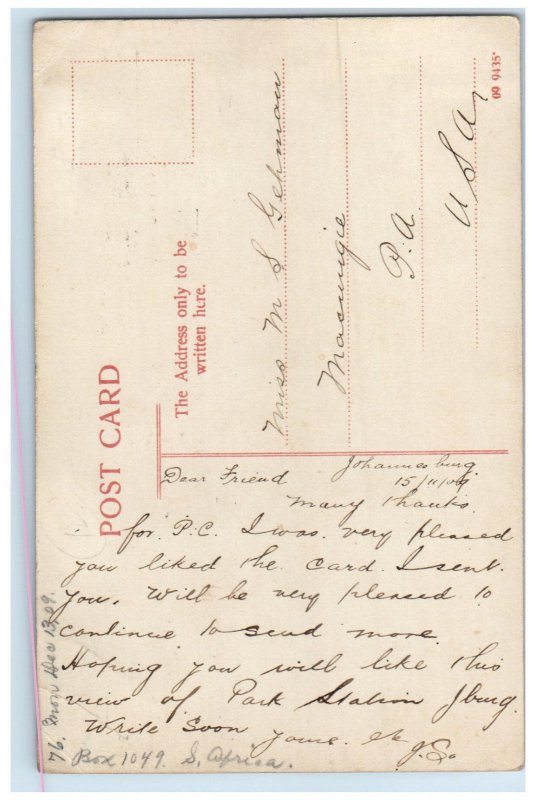 POST CARD
The Address only to be
written here.
09 9435
Miss M S Gehman
Macungie
P.A.
U S A
Johannesburg
15/11/09
Dear Friend
Many thanks
for P.C. I was very pleased
you liked the card I sent
you. Will be very pleased to
continue to send more
Hoping you will like this
view of Park Station Jburg.
Write Soon
Yours
Box 1049. S. Africa.
76. Mon Dec 13, 09.